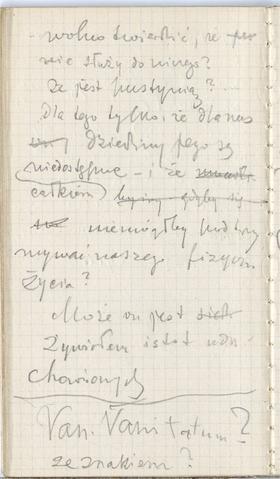 - wolno twierdzić, że
nie służy do niczego?
Że jest pustynią?
Dla tego tylko, że dla nas
dziedziny jego są
niedostępne - i że
całkiem
nie mógłby podtrzy
mywać naszego fizyczn
życia?
Może on jest
żywiołem istot udu-
chowionych
Van. Vanitatum?
ze znakiem?